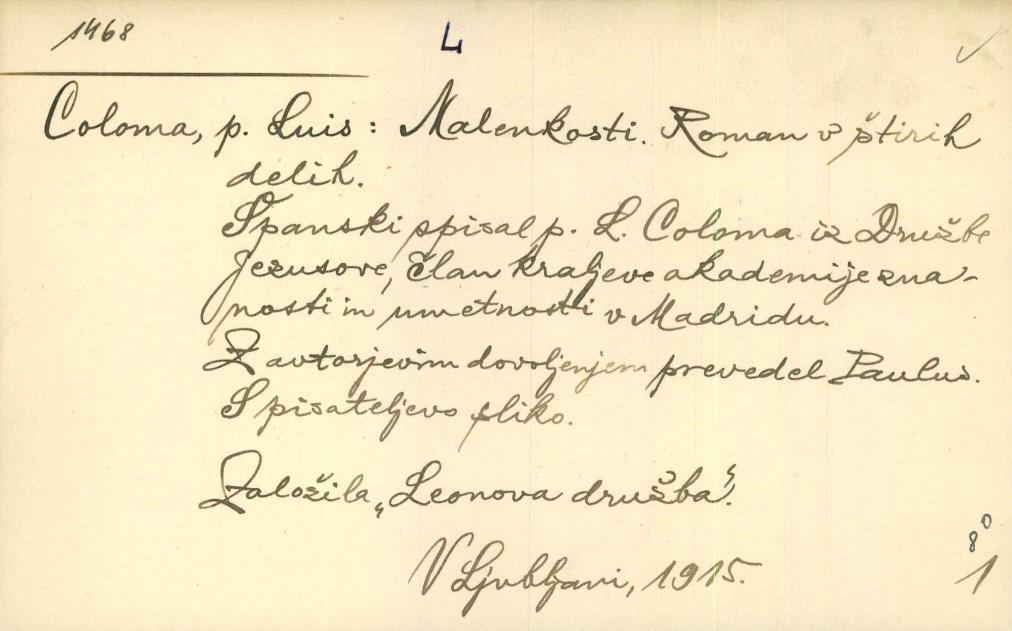 1468
L
Coloma, p. Luis: Malenkosti. Roman v štirih
delih.
Španski spisal p. L. Coloma iz Družbe
Jezusove, član kraljeve akademije zna-
nosti in umetnosti v Madridu.
Z avtorjevim dovoljenjem prevedel Paulus.
S pisateljevo sliko.
Založila „Leonova družba“.
V Ljubljani, 1915.
8⁰
1